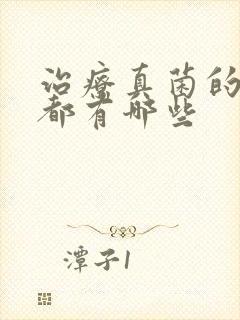 治疗真菌的
都有哪些
潭子1